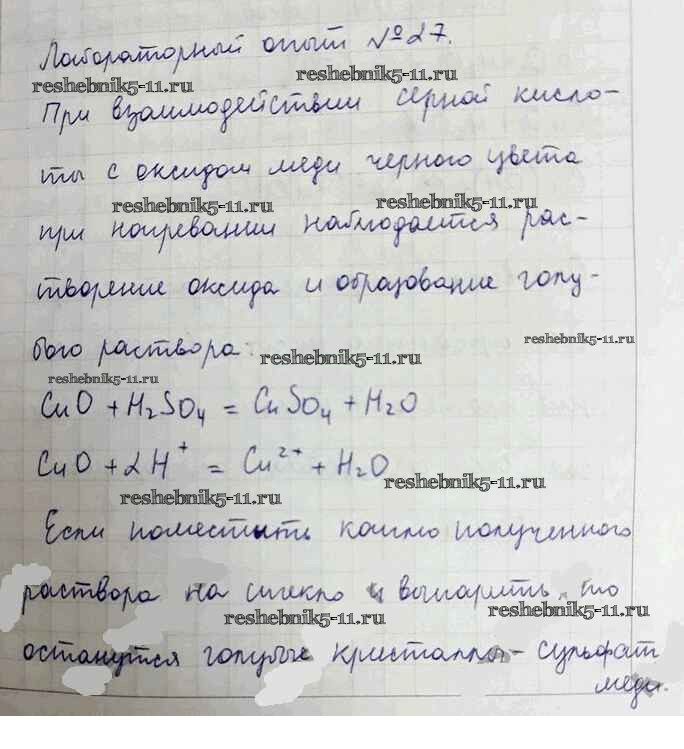 Лабораторный опыт №27.
reshebnik5-11.ru
reshebnik5-11.ru
При взаимодействии серной кисло-
ты с оксидом меди черного цвета
reshebnik5-11.ru
reshebnik5-11.ru
при нагревании наблюдается рас-
творение оксида и образование голу-
reshebnik5-11.ru
бого раствора:
reshebnik5-11.ru
reshebnik5-11.ru
CuO + H₂SO₄ = CuSO₄ + H₂O
CuO + 2H⁺ = Cu²⁺ + H₂O
reshebnik5-11.ru
reshebnik5-11.ru
Если поместить каплю полученного
раствора на стекло и выпарить, то
reshebnik5-11.ru
reshebnik5-11.ru
останутся голубые кристаллы - сульфат
меди.